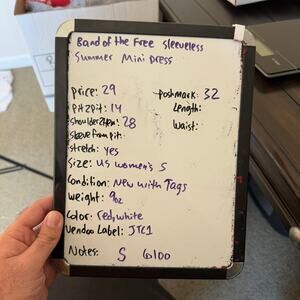 Band of the Free Sleeveless
Summer Mini Dress
price: 29
poshmark: 32
pit2pit: 14
Length:
shoulder2hem: 28
Waist:
sleeve from pit:
stretch: yes
Size: US women's S
Condition: New with Tags
weight: 9oz
Color: red, white
Vendoo Label: JTC1
Notes: S 6100